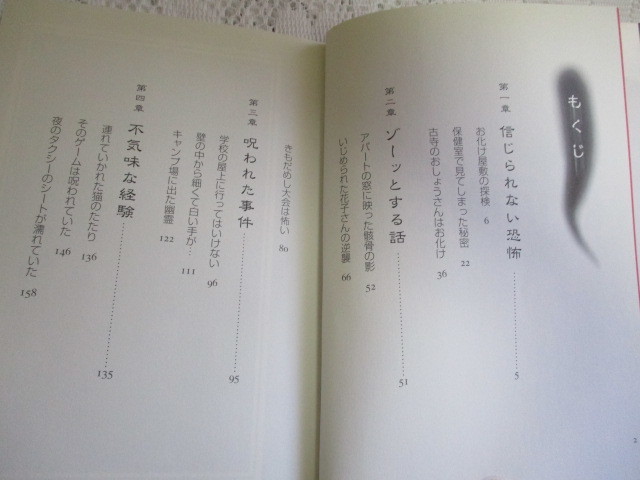 もくじ
第一章 信じられない恐怖 5
お化け屋敷の探検 6
保健室で見てしまった秘密 22
古寺のおしょうさんはお化け 36
第二章 ゾーッとする話 51
アパートの窓に映った骸骨の影 52
いじめられた花子さんの逆襲 66
きもだめし大会は怖い 80
第三章 呪われた事件 95
学校の屋上に行ってはいけない 96
壁の中から細くて白い手が… 111
キャンプ場に出た幽霊 122
第四章 不気味な経験 135
連れていかれた猫のたたり 136
そのゲームは呪われていた 146
夜のタクシーのシートが濡れていた 158